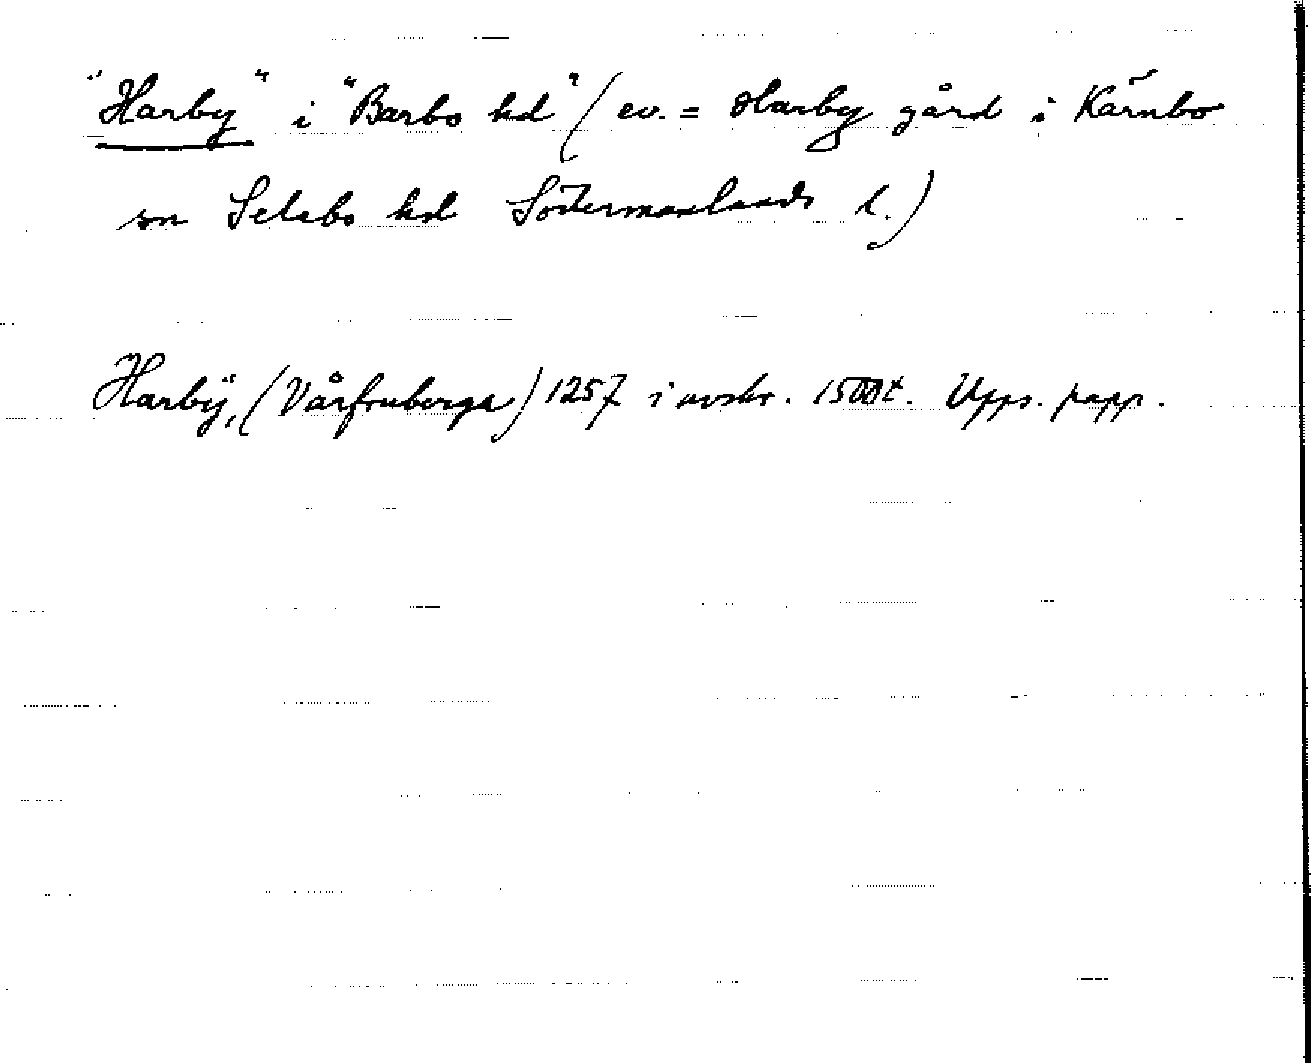 "Harby" i "Barbo hd" (ev. = Harby gård i Kärnbo
sn Selebo hd Södermanlands l.)
Harbÿ, (Vårfruberga) 1257 i avskr. 1500t. Upps. papp.